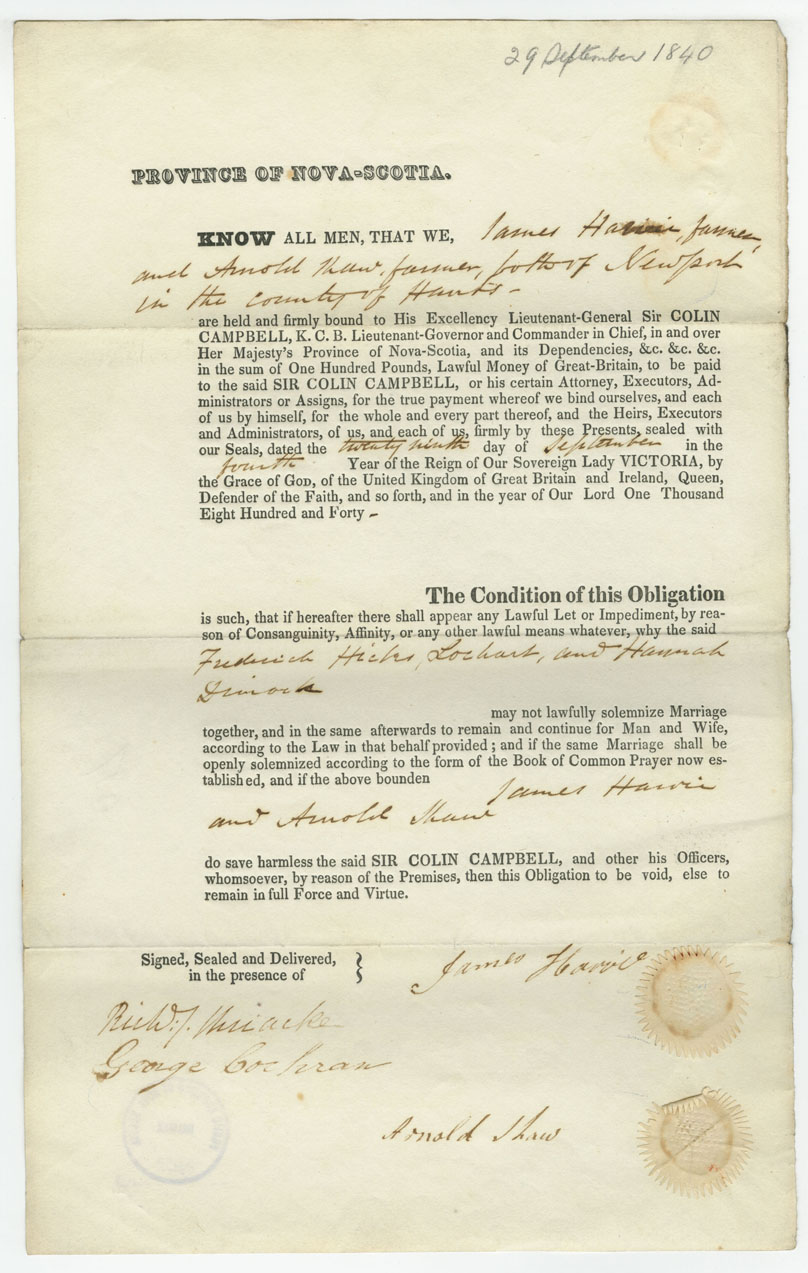 29 September 1840
PROVINCE OF NOVA-SCOTIA.
KNOW ALL MEN, THAT WE, James Harvie, farmer,
and Arnold Shaw, farmer, both of Newport
in the county of Hants -
are held and firmly bound to His Excellency Lieutenant-General Sir COLIN
CAMPBELL, K. C. B. Lieutenant-Governor and Commander in Chief, in and over
Her Majesty's Province of Nova-Scotia, and its Dependencies, &c. &c. &c.
in the sum of One Hundred Pounds, Lawful Money of Great-Britain, to be paid
to the said SIR COLIN CAMPBELL, or his certain Attorney, Executors, Ad-
ministrators or Assigns, for the true payment whereof we bind ourselves, and each
of us by himself, for the whole and every part thereof, and the Heirs, Executors
and Administrators, of us, and each of us, firmly by these Presents, sealed with
our Seals, dated the twenty ninth day of September in the
fourth Year of the Reign of Our Sovereign Lady VICTORIA, by
the Grace of GOD, of the United Kingdom of Great Britain and Ireland, Queen,
Defender of the Faith, and so forth, and in the year of Our Lord One Thousand
Eight Hundred and Forty -
The Condition of this Obligation
is such, that if hereafter there shall appear any Lawful Let or Impediment, by rea-
son of Consanguinity, Affinity, or any other lawful means whatever, why the said
Frederick Hicks, Lockart, and Hannah
Dimock
may not lawfully solemnize Marriage
together, and in the same afterwards to remain and continue for Man and Wife,
according to the Law in that behalf provided; and if the same Marriage shall be
openly solemnized according to the form of the Book of Common Prayer now es-
tablished, and if the above bounden
James Harvie
and Arnold Shaw
do save harmless the said SIR COLIN CAMPBELL, and other his Officers,
whomsoever, by reason of the Premises, then this Obligation to be void, else to
remain in full Force and Virtue.
Signed, Sealed and Delivered, James Harvie
in the presence of
Richd. J. Uniacke
George Cochran
Arnold Shaw